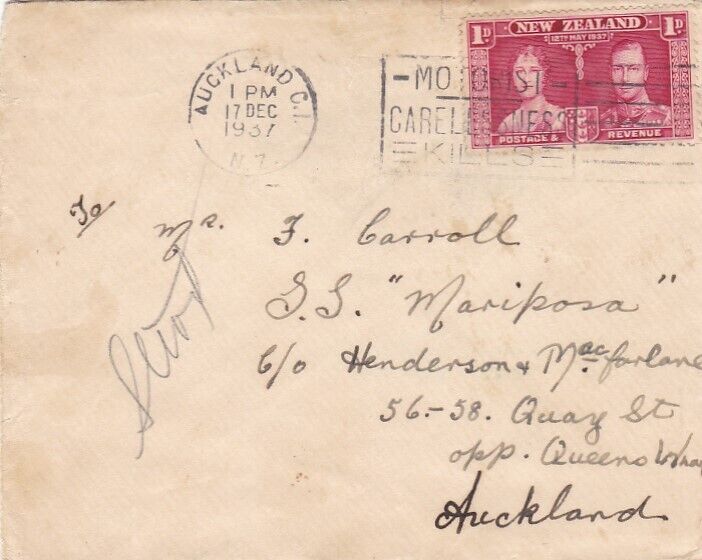 AUCKLAND C.1.
1 PM
17 DEC
1937
N.Z.
- MOTORIST -
CARELESSNESS
KILLS
1D NEW ZEALAND 1D
12TH MAY 1937
POSTAGE & REVENUE
To
Mr. F. Carroll
S.S. "Mariposa"
c/o Henderson & Macfarlane
56-58. Quay St
opp. Queens Wharf
Auckland